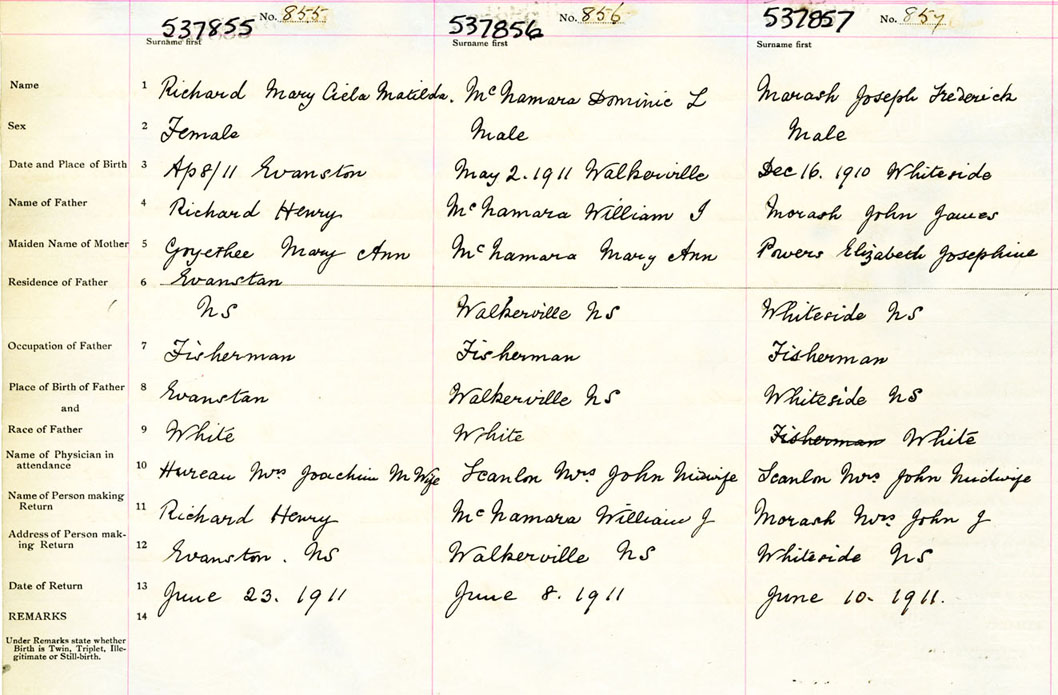 537855 No. 855 537856 No. 856 537857 No. 857
Surname first Surname first Surname first
Name 1 Richard Mary Ciela Matilda. McNamara Dominic L Marash Joseph Frederick
Sex 2 Female Male Male
Date and Place of Birth 3 Ap 8/11 Evanston May 2. 1911 Walkerville Dec 16. 1910 Whiteside
Name of Father 4 Richard Henry McNamara William J Morash John James
Maiden Name of Mother 5 Goyethee Mary Ann McNamara Mary Ann Powers Elizabeth Josephine
Residence of Father 6 Evanstan
NS Walkerville NS Whiteside NS
Occupation of Father 7 Fisherman Fisherman Fisherman
Place of Birth of Father 8 Evanstan Walkerville NS Whiteside NS
and
Race of Father 9 White White Fisherman White
Name of Physician in
attendance 10 Hureau Mrs Joachim M Wife Scanlon Mrs John Midwife Scanlon Mrs John Midwife
Name of Person making
Return 11 Richard Henry McNamara William J Morash Mrs John J
Address of Person mak-
ing Return 12 Evanston. NS Walkerville NS Whiteside NS
Date of Return 13 June 23. 1911 June 8. 1911 June 10. 1911.
REMARKS 14
Under Remarks state whether
Birth is Twin, Triplet, Ille-
gitimate or Still-birth.